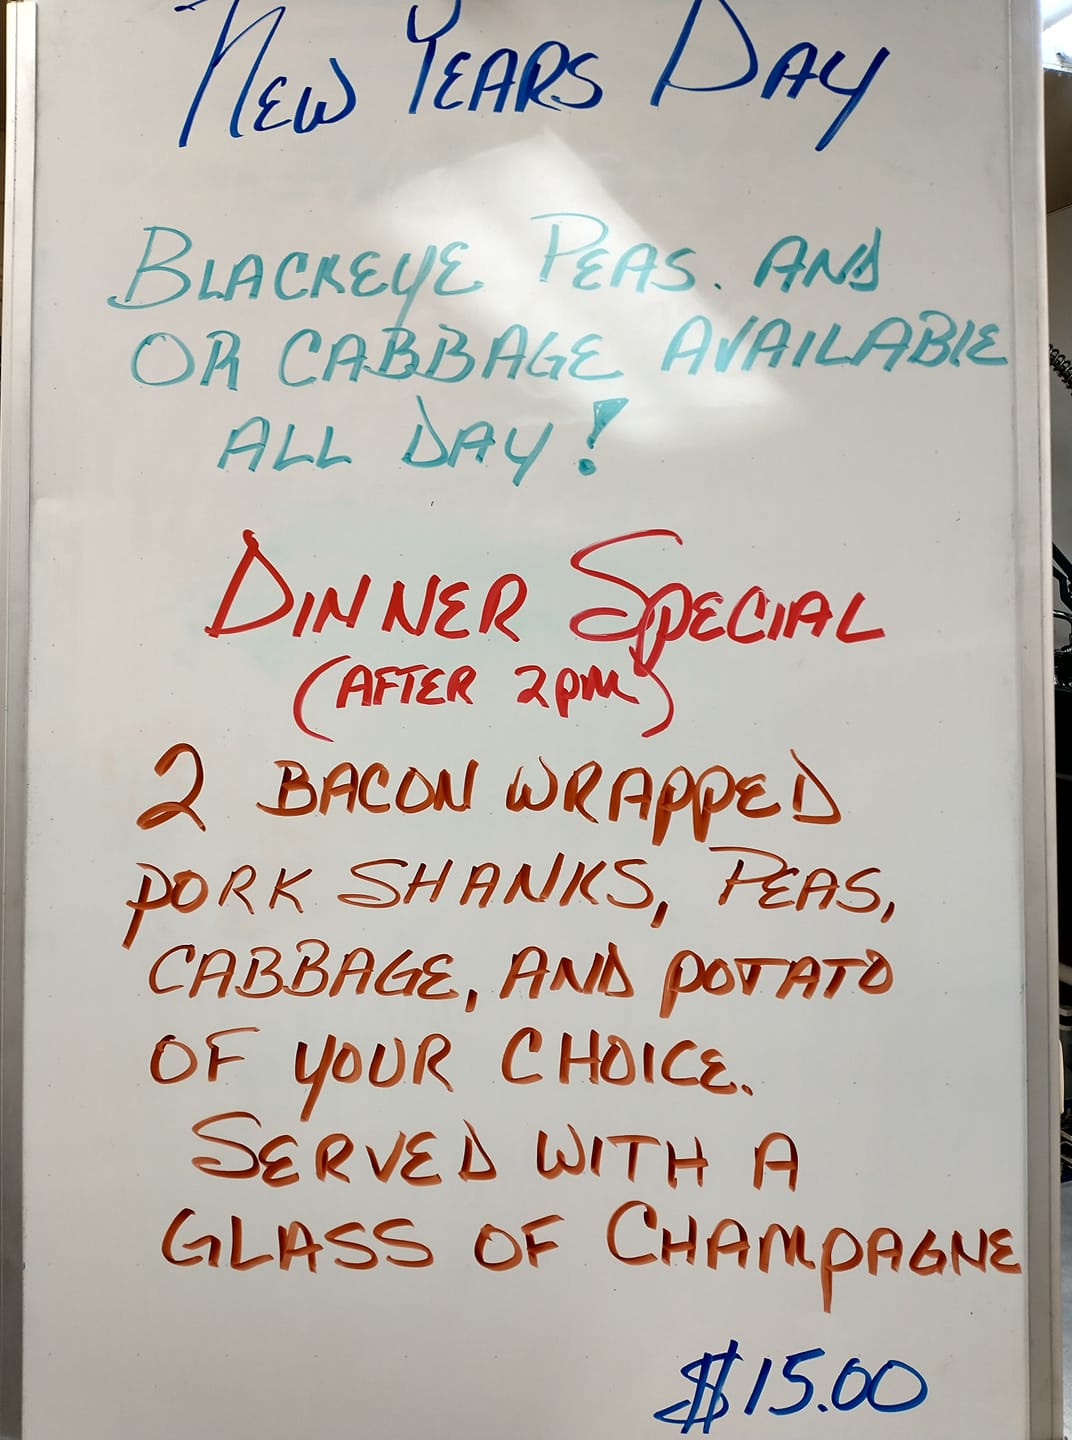 NEW YEARS DAY
BLACKEYE PEAS. AND
OR CABBAGE AVAILABLE
ALL DAY!
DINNER SPECIAL
(AFTER 2PM)
2 BACON WRAPPED
PORK SHANKS, PEAS,
CABBAGE, AND POTATO
OF YOUR CHOICE.
SERVED WITH A
GLASS OF CHAMPAGNE
$15.00